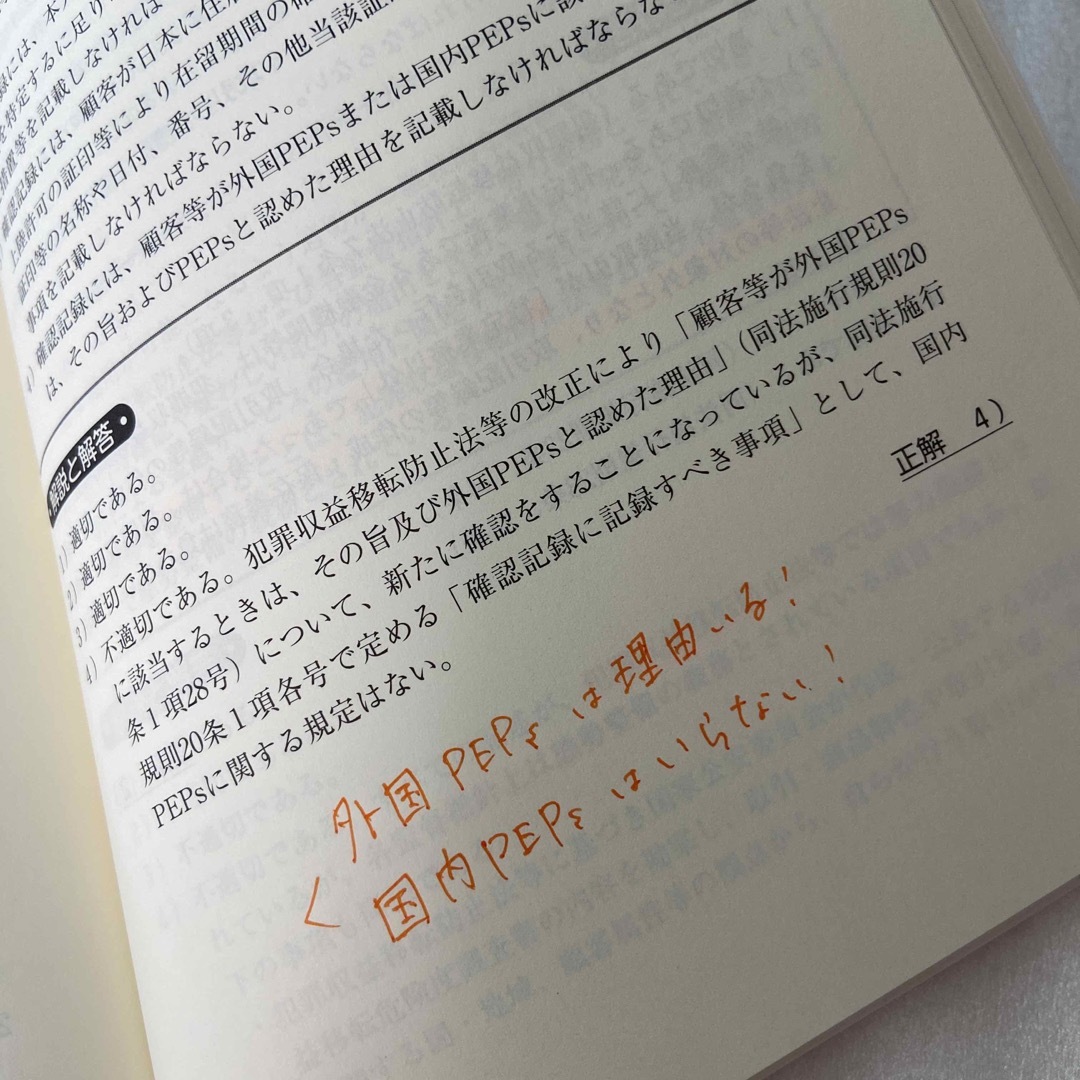 を特定するに足り
措置等を記載しなければ
確認記録には、顧客が日本に住
上陸許可の証印等により在留期間の確
証印等の名称や日付、番号、その他当該証
事項を記載しなければならない。
4）確認記録には、顧客等が外国PEPsまたは国内PEPsに該
は、その旨およびPEPsと認めた理由を記載しなければならな
解説と解答
1）適切である。
2）適切である。
3）適切である。
4）不適切である。犯罪収益移転防止法等の改正により「顧客等が外国PEPs
に該当するときは、その旨及び外国PEPsと認めた理由」（同法施行規則20
条１項28号）について、新たに確認をすることになっているが、同法施行
規則20条１項各号で定める「確認記録に記録すべき事項」として、国内
PEPsに関する規定はない。
正解 4）
外国PEPsは理由いる！
< 国内PEPsはいらない！